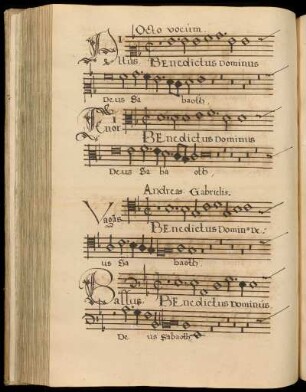 Octo vocum.
Altus. BEnedictus Dominus
Deus Sa baoth.
Tenor BEnedictus Dominus
Deus Sa ba oth.
Andreas Gabrielis.
Vagās BEnedictus Domin9 De:
us Sa baoth.
Bassus. BEnedictus Dominus
De us Sabaoth.